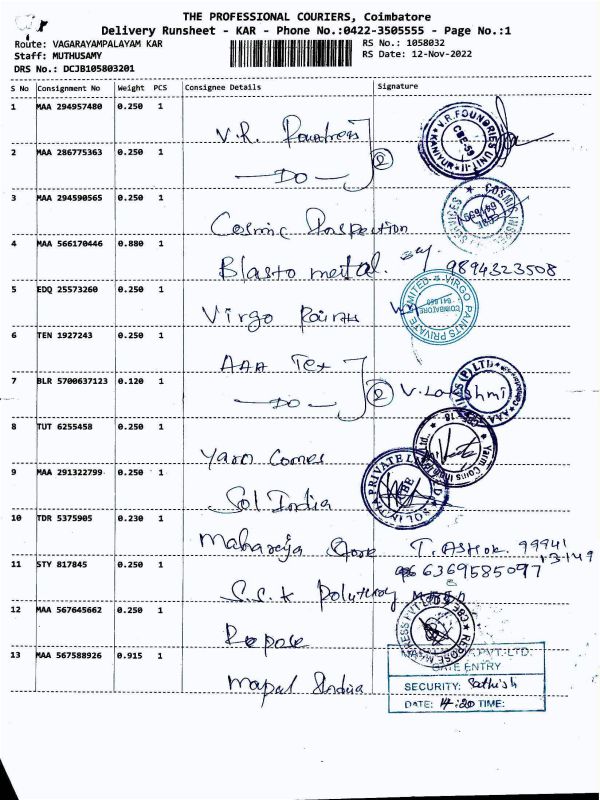 THE PROFESSIONAL COURIERS, Coimbatore
Delivery Runsheet - KAR - Phone No.:0422-3505555 - Page No.:1
Route: VAGARAYAMPALAYAM KAR RS No.: 1058032
Staff: MUTHUSAMY RS Date: 12-Nov-2022
DRS No.: DCJB105803201
S No Consignment No Weight PCS Consignee Details Signature
1 MAA 294957480 0.250 1
V.R. V.R.FOUNDRIES UNIT-II KANIYUR CBE-59
2 MAA 286775363 0.250 1
DO 2
3 MAA 294590565 0.250 1
Cosmic Inspection COSMIC INSPE SERVICES
4 MAA 566170446 0.880 1
Blasto metal. 9894323508
5 EDQ 25573260 0.250 1
Virgo Paints VIRGO PAINTS PRIVATE LIMITED COIMBATORE
6 TEN 1927243 0.250 1
AAA Tex
7 BLR 5700637123 0.120 1
DO 2 V. Lakshmi (P) LTD AAA
8 TUT 6255458 0.250 1
Yarn Cones Yarn Cons
9 MAA 291322799 0.250 1
Sol India SOL INDIA PRIVATE LIMITED CBE
10 TDR 5375905 0.230 1
Maharaja Store T. Ashok. 99941
13149
11 STY 817845 0.250 1
6369585097
S.S.K
12 MAA 567645662 0.250 1
Repose REPOSE MATTRESS PVT LTD CBE
13 MAA 567588926 0.915 1
Mapal India PVT.LTD.
GATE ENTRY
SECURITY: Sathish
DATE: 14:20 TIME: